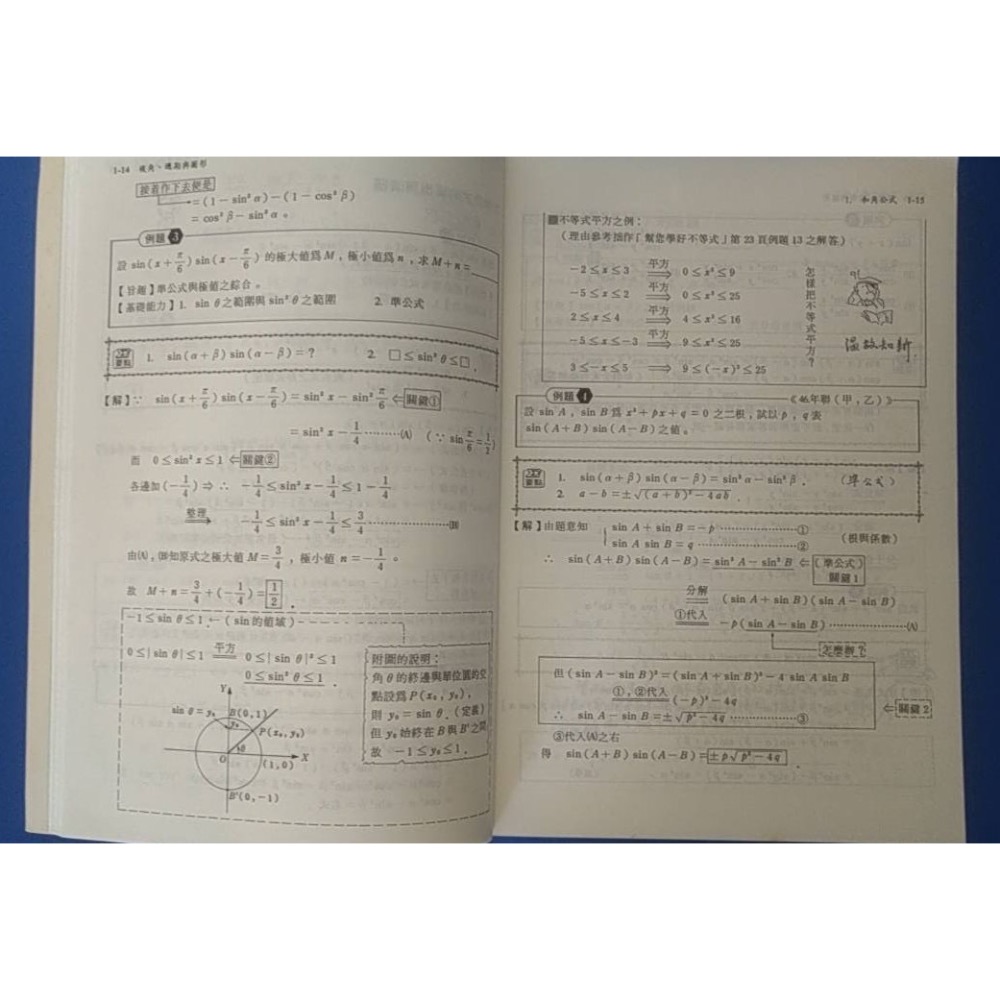 1-14 複角、週期與圖形
接着作下去便是
=(1-sin²α)-(1-cos²β)
=cos²β-sin²α。
例題 3
設 sin(x+π/6)sin(x-π/6) 的極大值爲M,極小值爲n,求M+n=____
【旨趣】準公式與極値之綜合。
【基礎能力】1. sin θ之範圍與sin²θ之範圍 2. 準公式
要點 1. sin(α+β)sin(α-β)=? 2. □≤sin²θ≤□.
【解】∵ sin(x+π/6)sin(x-π/6)=sin²x-sin²π/6 ⇐關鍵①
=sin²x-1/4………(A) (∵ sinπ/6=1/2)
而 0≤sin²x≤1 ⇐關鍵②
各邊加(-1/4)⇒∴ -1/4≤sin²x-1/4≤1-1/4
整理⇒ -1/4≤sin²x-1/4≤3/4………………(B)
由(A),(B)知原式之極大値 M=3/4,極小値 n=-1/4。
故 M+n=3/4+(-1/4)=1/2.
-1≤sin θ≤1.←(sin的値域)
0≤|sin θ|≤1 平方⇒ 0≤|sin θ|²≤1
0≤sin²θ≤1.
附圖的說明:
角θ的終邊與單位圓的交
點設爲P(x₀,y₀),
則 y₀=sin θ.(定義)
但y₀始終在B與B'之間
故 -1≤y₀≤1.
Y
sin θ=y₀
B(0,1)
y₀
P(x₀,y₀)
θ
O
(1,0)
X
B'(0,-1)
1. 和角公式 1-15
不等式平方之例:
(理由參考拙作「幫您學好不等式」第23頁例題13之解答)
-2≤x≤3 平方⇒ 0≤x²≤9
-5≤x≤2 平方⇒ 0≤x²≤25
2≤x≤4 平方⇒ 4≤x²≤16
-5≤x≤-3 平方⇒ 9≤x²≤25
3≤-x≤5 ⇒ 9≤(-x)²≤25
怎樣把不等式平方?
溫故知新
例題 4
《46年聯(甲,乙)》
設 sin A,sin B爲 x²+px+q=0之二根,試以p,q表
sin(A+B)sin(A-B)之値。
要點 1. sin(α+β)sin(α-β)=sin²α-sin²β. (準公式)
2. a-b=±√(a+b)²-4ab.
【解】由題意知 sin A+sin B=-p………………①
sin A sin B=q………………② (根與係數)
∴ sin(A+B)sin(A-B)=sin²A-sin²B ⇐(準公式)
關鍵1
分解 (sin A+sin B)(sin A-sin B)
①代入 -p(sin A-sin B)………………(A)
怎麼辦?
但(sin A-sin B)²=(sin A+sin B)²-4 sin A sin B
①,②代入 (-p)²-4q
∴ sin A-sin B=±√p²-4q………………③
⇐關鍵2
③代入(A)之右
得 sin(A+B)sin(A-B)=±p√p²-4q.